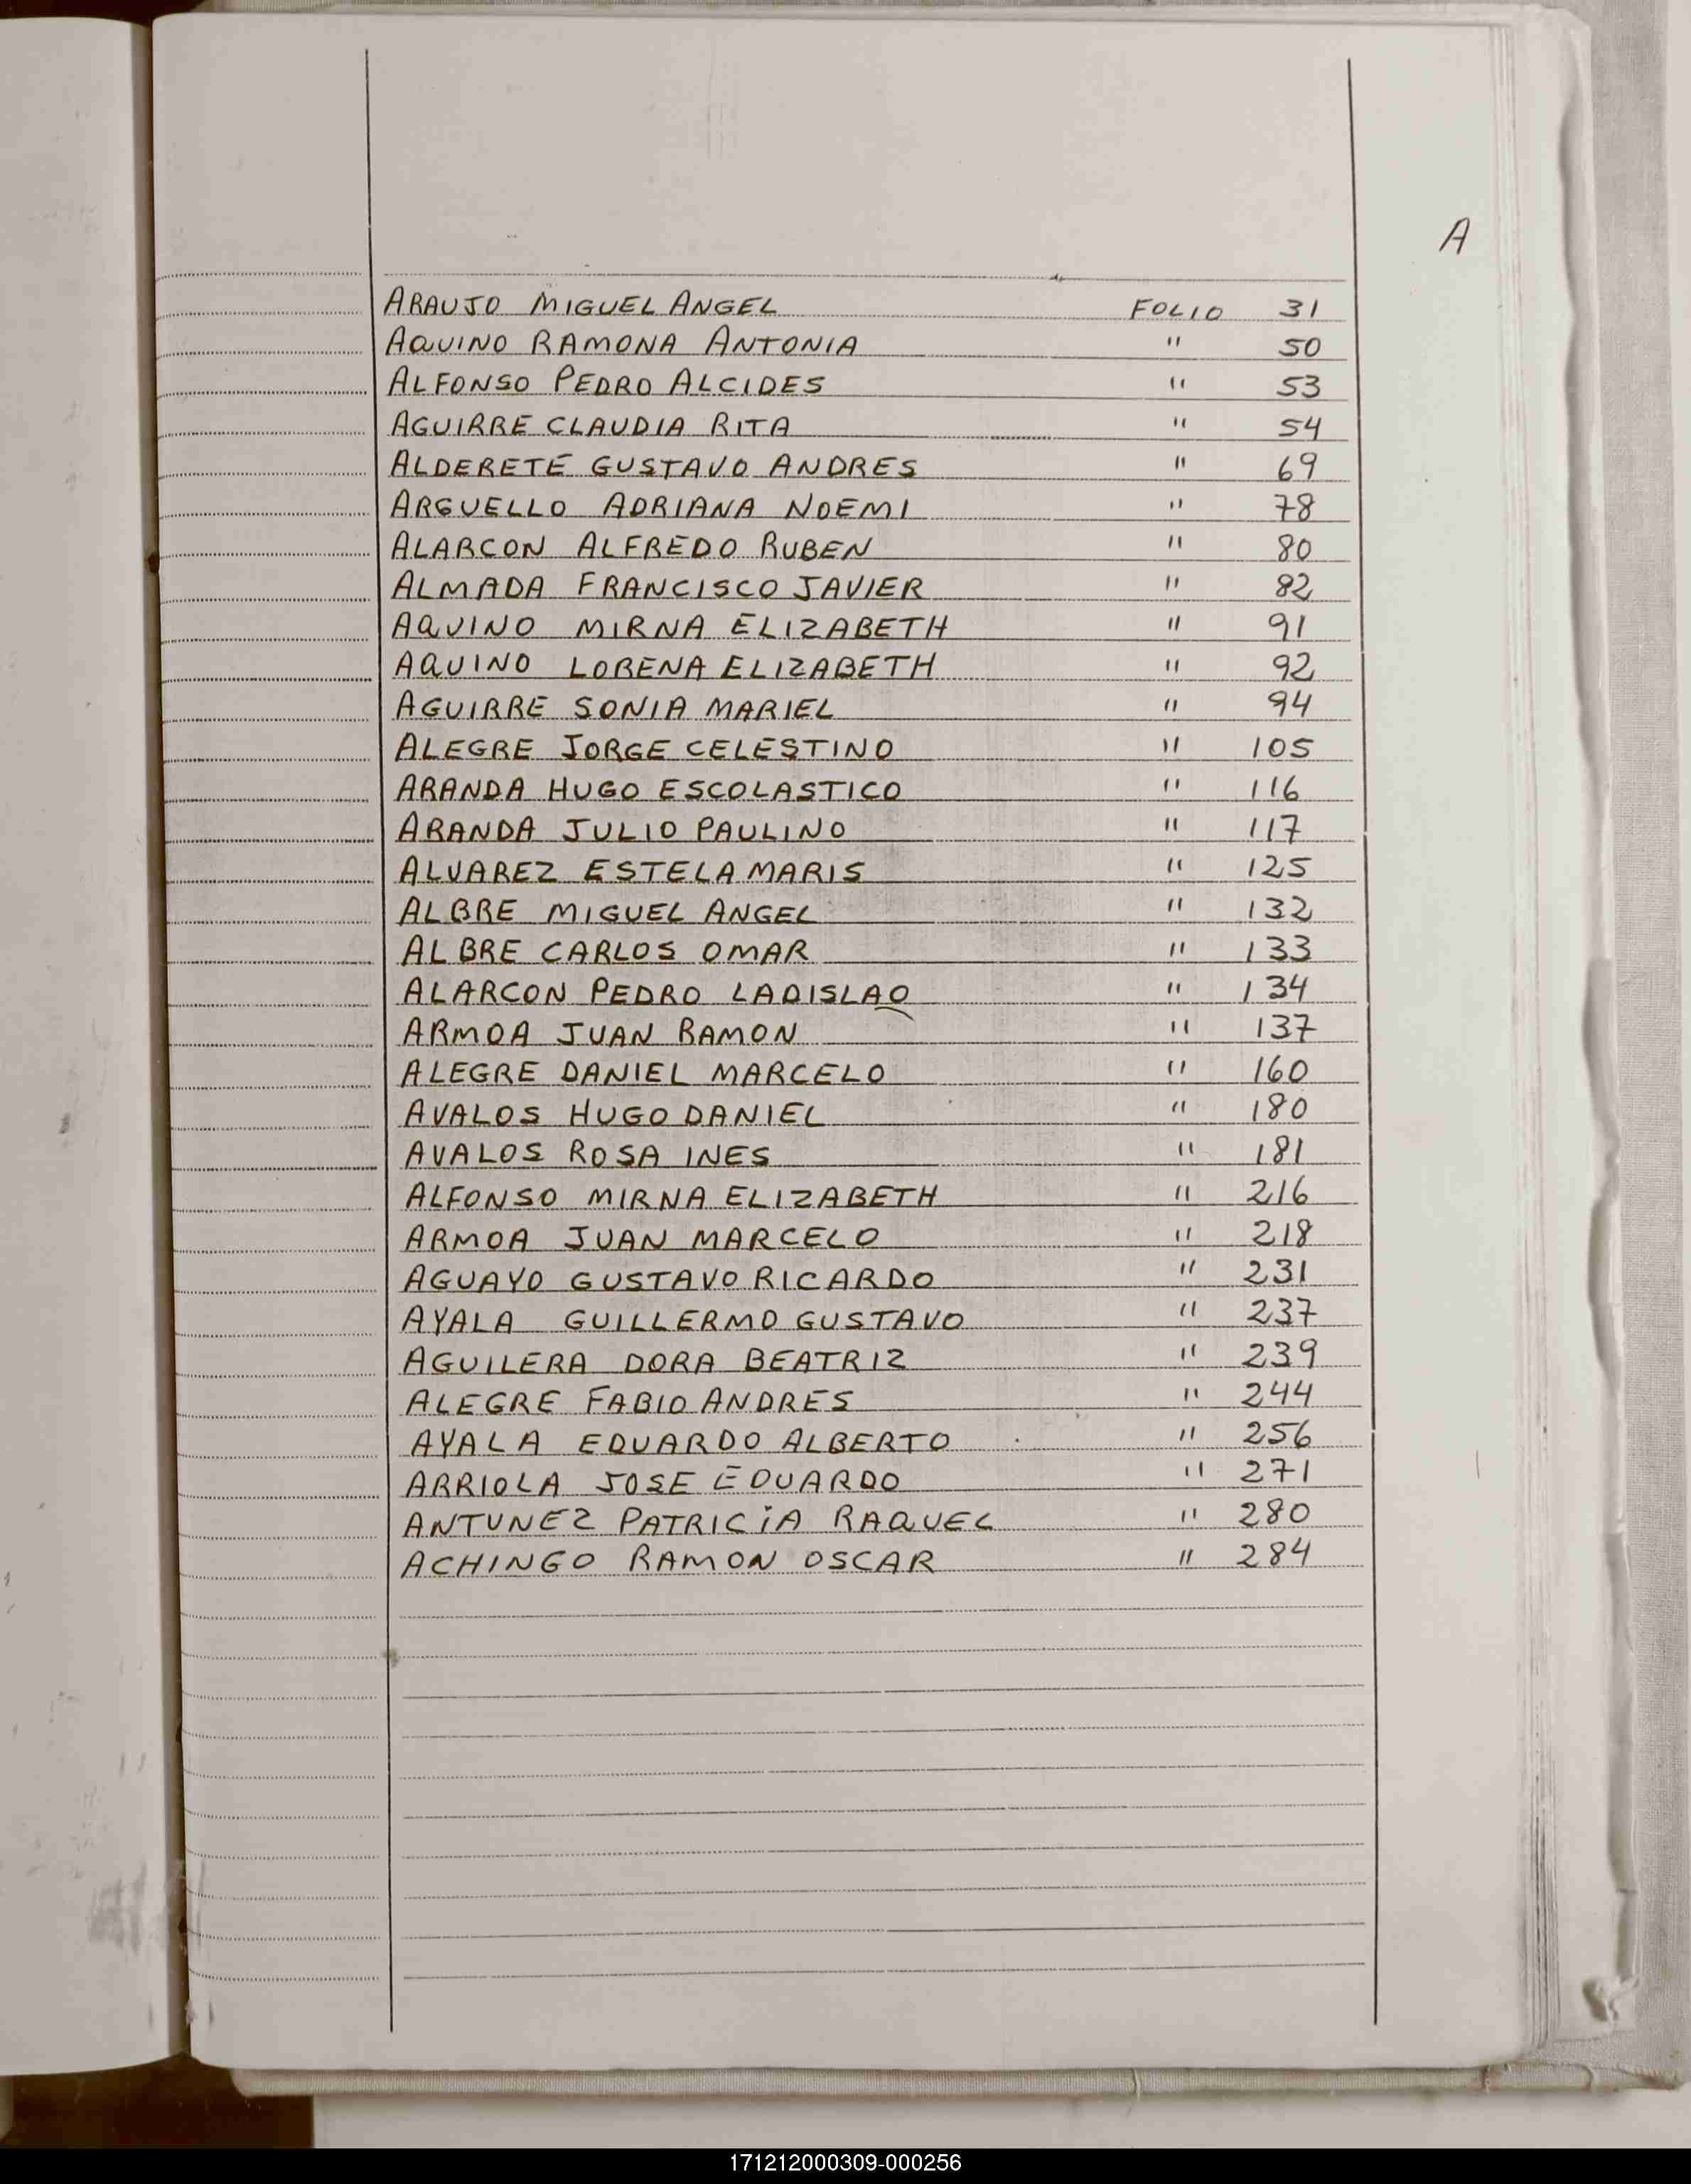 A
ARAUJO MIGUEL ANGEL FOLIO 31
AQUINO RAMONA ANTONIA " 50
ALFONSO PEDRO ALCIDES " 53
AGUIRRE CLAUDIA RITA " 54
ALDERETE GUSTAVO ANDRES " 69
ARGUELLO ADRIANA NOEMI " 78
ALARCON ALFREDO RUBEN " 80
ALMADA FRANCISCO JAVIER " 82
AQUINO MIRNA ELIZABETH " 91
AQUINO LORENA ELIZABETH " 92
AGUIRRE SONIA MARIEL " 94
ALEGRE JORGE CELESTINO " 105
ARANDA HUGO ESCOLASTICO " 116
ARANDA JULIO PAULINO " 117
ALVAREZ ESTELA MARIS " 125
ALBRE MIGUEL ANGEL " 132
ALBRE CARLOS OMAR " 133
ALARCON PEDRO LADISLAO " 134
ARMOA JUAN RAMON " 137
ALEGRE DANIEL MARCELO " 160
AVALOS HUGO DANIEL " 180
AVALOS ROSA INES " 181
ALFONSO MIRNA ELIZABETH " 216
ARMOA JUAN MARCELO " 218
AGUAYO GUSTAVO RICARDO " 231
AYALA GUILLERMO GUSTAVO " 237
AGUILERA DORA BEATRIZ " 239
ALEGRE FABIO ANDRES " 244
AYALA EDUARDO ALBERTO " 256
ARRIOLA JOSE EDUARDO " 271
ANTUNEZ PATRICIA RAQUEL " 280
ACHINGO RAMON OSCAR " 284
171212000309-000256